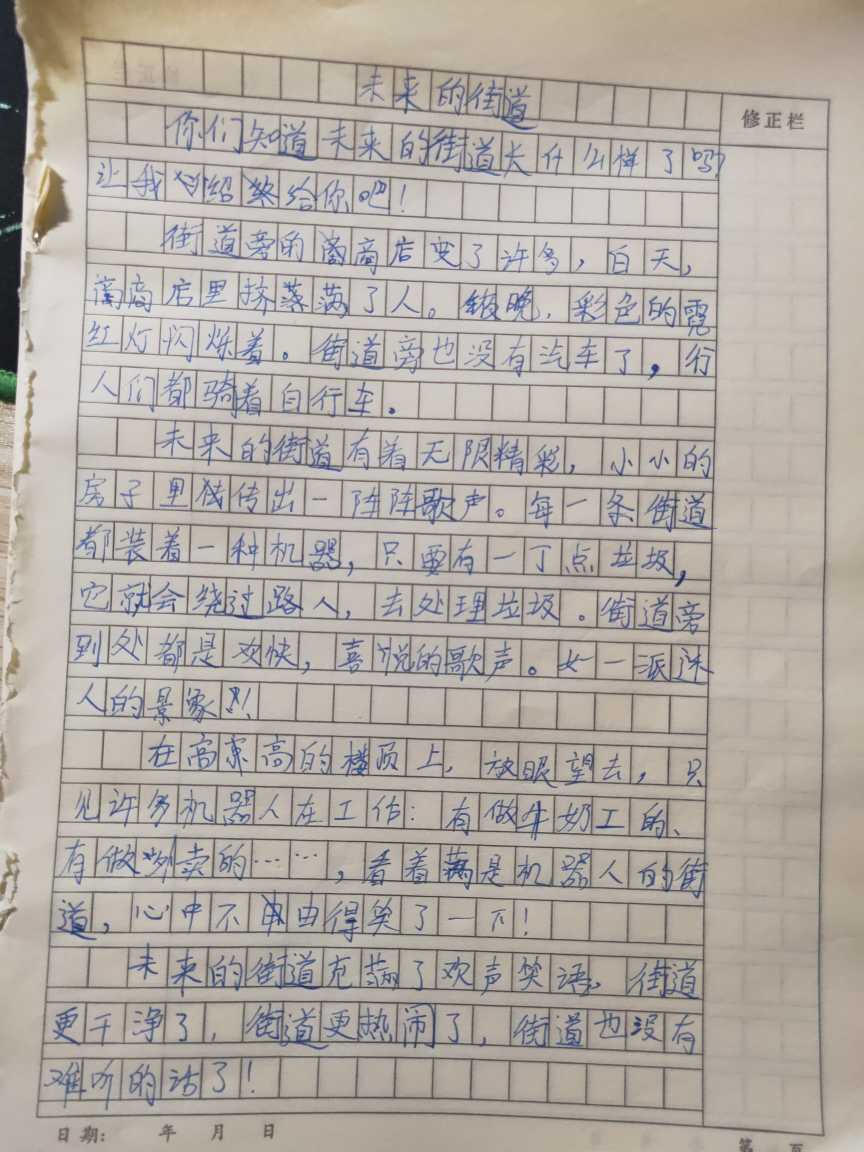 未来的街道
修正栏
你们知道未来的街道长什么样了吗?
让我介绍给你吧!
街道旁的商店变了许多,白天,
商店里挤满了人。晚,彩色的霓
红灯闪烁着。街道旁也没有汽车了,行
人们都骑着自行车。
未来的街道有着无限精彩,小小的
房子里传出一阵阵歌声。每一条街道
都装着一种机器,只要有一丁点垃圾,
它就会绕过路人,去处理垃圾。街道旁
到处都是欢快,喜悦的歌声。好一派迷
人的景象!
在高高的楼顶上,放眼望去,只
见许多机器人在工作:有做牛奶工的、
有做外卖的……,看着满是机器人的街
道,心中不由得笑了一下!
未来的街道充满了欢声笑语,街道
更干净了,街道更热闹了,街道也没有
难听的话了!
日期: 年 月 日
第 页